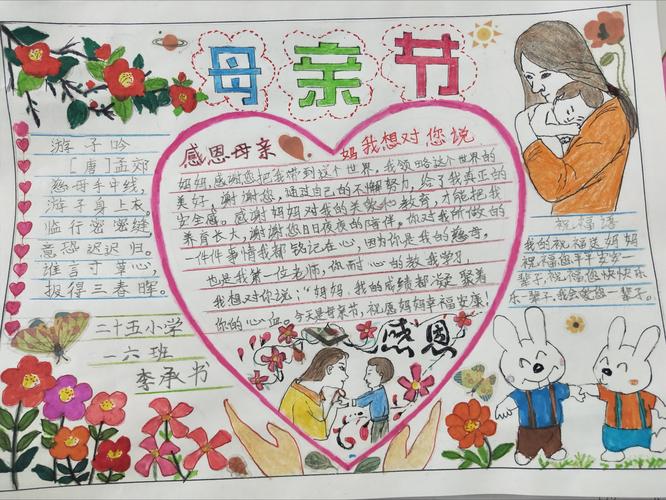 母亲节
游子吟
[唐]孟郊
慈母手中线,
游子身上衣。
临行密密缝,
意恐迟迟归。
谁言寸草心,
报得三春晖。
二十五小学
一六班
李承书
感恩母亲
妈我想对您说
妈妈,感谢您把我带到这个世界,我领略这个世界的
美好,谢谢您,通过自己的不懈努力,给了我真正的
安全感。感谢妈妈对我的关爱和教育,才能把我
养育长大,谢谢您日日夜夜的陪伴。你对我所做的
一件件事情我都铭记在心,因为你是我的慈母。
也是我第一位老师,你耐心的教我学习,
我想对你说:“妈妈,我的成绩都凝聚着
你的心血。今天是母亲节,祝愿妈妈幸福安康!
感恩
祝福语
我的祝福送妈妈
祝福您平平安安一
辈子,祝福您快快乐
乐一辈子,我会爱您一辈子。